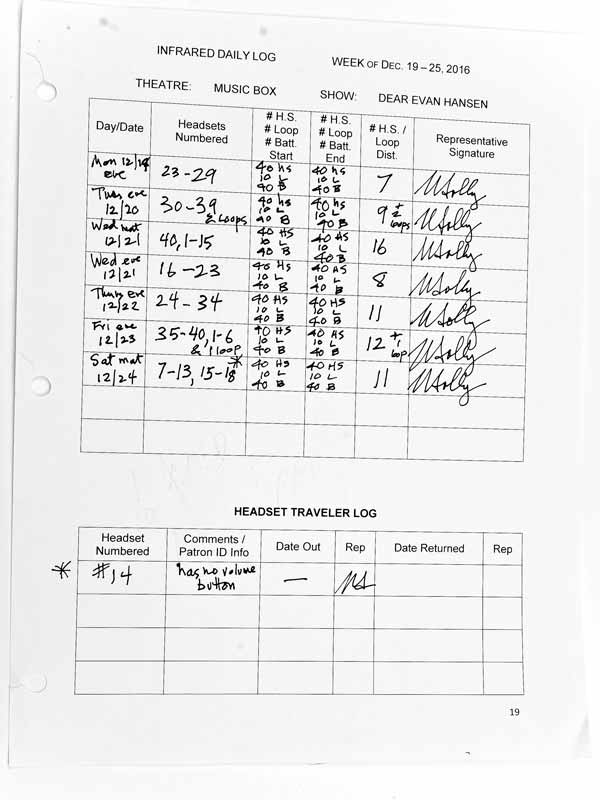 INFRARED DAILY LOG WEEK OF DEC. 19 – 25, 2016
THEATRE: MUSIC BOX SHOW: DEAR EVAN HANSEN
Day/Date Headsets Numbered # H.S. # Loop # Batt. Start # H.S. # Loop # Batt. End # H.S. / Loop Dist. Representative Signature
Mon 12/19 eve 23-29 40 HS 10 L 40 B 40 HS 10 L 40 B 7
Tues eve 12/20 30-39 & Loops 40 HS 10 L 40 B 40 HS 10 L 40 B 9 + 2 loops
Wed mat 12/21 40,1-15 40 HS 10 L 40 B 40 HS 10 L 40 B 16
Wed eve 12/21 16-23 40 HS 10 L 40 B 40 HS 10 L 40 B 8
Thurs eve 12/22 24-34 40 HS 10 L 40 B 40 HS 10 L 40 B 11
Fri eve 12/23 35-40,1-6 & 1 loop 40 HS 10 L 40 B 40 HS 10 L 40 B 12 + 1 loop
Sat mat 12/24 7-13, 15-18* 40 HS 10 L 40 B 40 HS 10 L 40 B 11
HEADSET TRAVELER LOG
Headset Numbered Comments / Patron ID Info Date Out Rep Date Returned Rep
* #14 has no volume button —
19